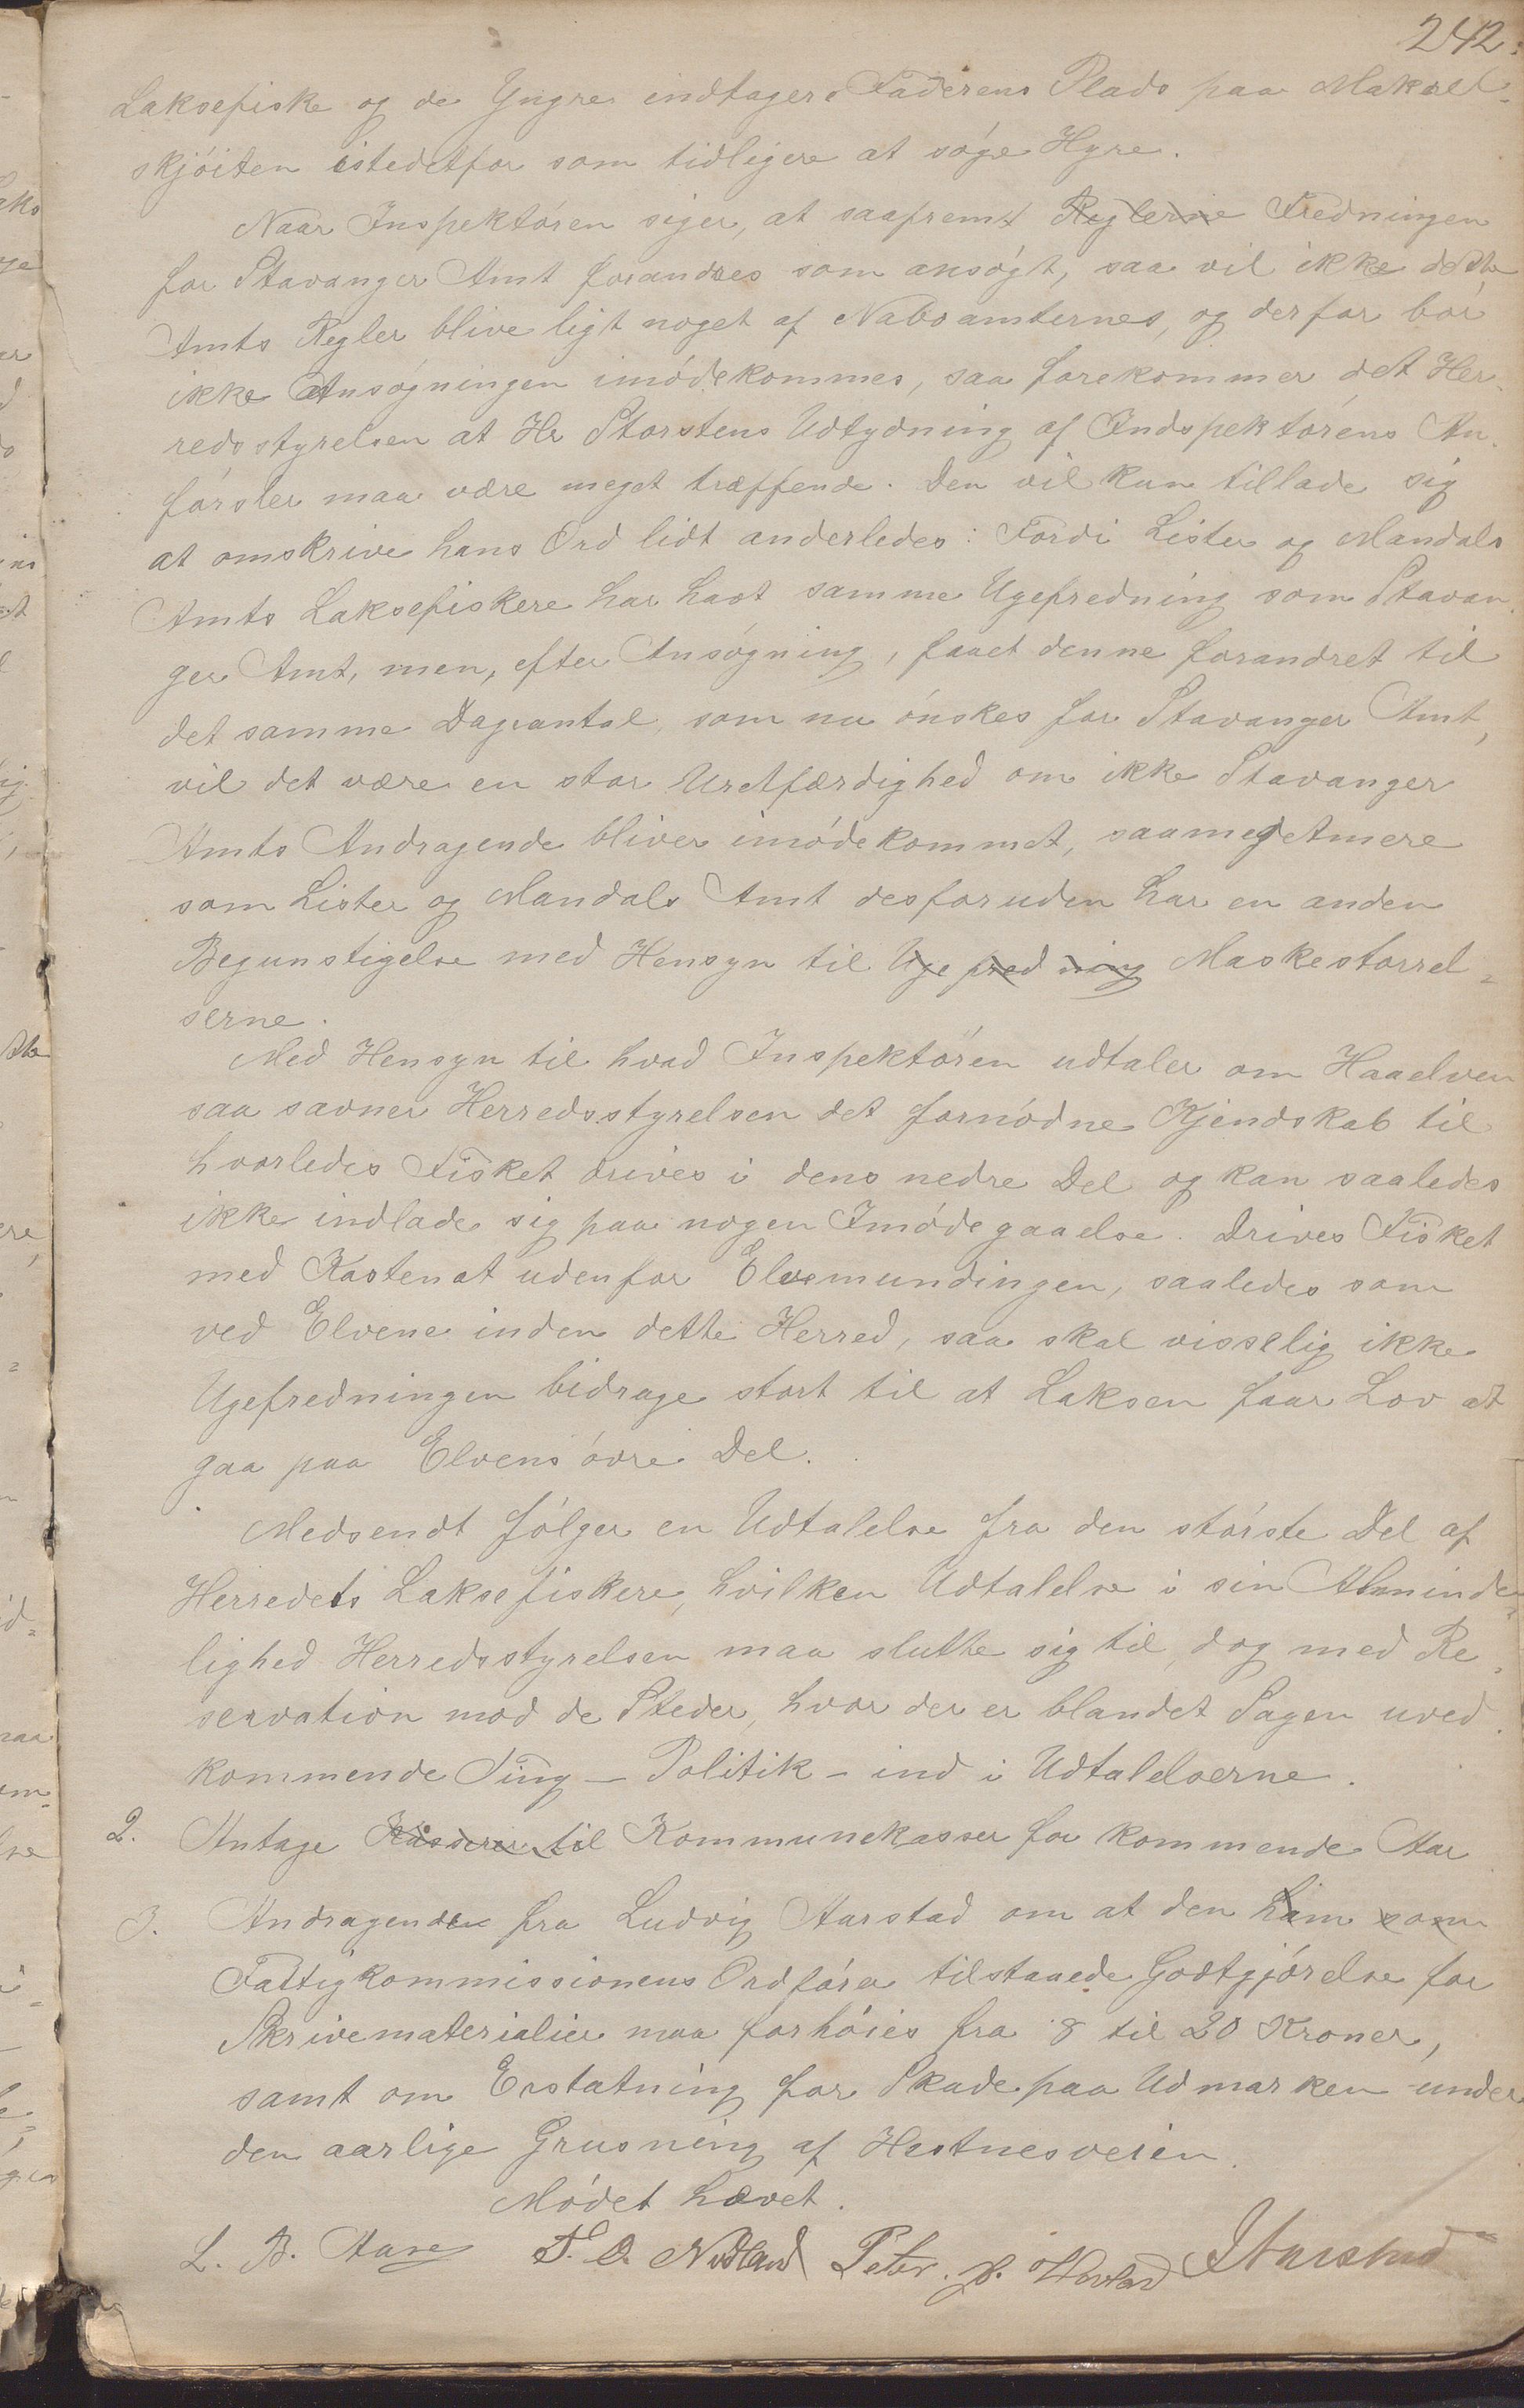 242.
Laksefiske og de Yngre indtager Faderens Plads paa Makrel-
skjöiten istedetfor som tidligere at söge Hyre.
Naar Inspektören siger, at saafremt Reglerne Fredningen
for Stavanger Amt forandres som ansögt, saa vil ikke dette
Amts Regler blive ligt noget af Naboamternes, og derfor bör
ikke Ansögningen imödekommes, saa forekommer det Her-
redsstyrelsen at Hr Storstens Udtydning af Indspektörens An-
försler maa være meget træffende. Den vil kun tillade sig
at omskrive hans Ord lidt anderledes: Fordi Lister og Mandals
Amts Laksefiskere har havt samme Ugefredning som Stavan-
ger Amt, men, efter Ansögning, faaet denne forandret til
det samme Dagantal, som nu önskes for Stavanger Amt,
vil det være en stor Uretfærdighed om ikke Stavanger
Amts Andragende bliver imödekommet, saameget mere
som Lister og Mandals Amt desforuden har en anden
Begunstigelse med Hensyn til Ugefredning Maskestorrel-
serne.
Med Hensyn til hvad Inspektören udtaler om Haaelven
saa savner Herredsstyrelsen det fornödne Kjendskab til
hvorledes Fisket drives i dens nedre Del og kan saaledes
ikke indlade sig paa nogen Imödegaaelse. Drives Fisket
med Kastenot udenfor Elvemundingen, saaledes som
ved Elvene inden dette Herred, saa skal visselig ikke
Ugefredningen bidrage stort til at Laksen faar Lov at
gaa paa Elvens övre Del.
Medsendt fölger en Udtalelse fra den störste Del af
Herredets Laksefiskere, hvilken Udtalelse i sin Alminde-
lighed Herredsstyrelsen maa slutte sig til, dog med Re-
servation mod de Steder, hvor der er blandet Sagen uved-
kommende Ting – Politik – ind i Udtalelserne.
2. Antage Kasserer til Kommunekasser for kommende Aar
3. Andragender fra Ludvig Aarstad om at den ham som
Fattigkommissionens Ordförer tilstaaede Godtgjörelse for
Skrivematerialier maa forhöies fra 8 til 20 Kroner,
samt om Erstatning for Skade paa Udmarken under
den aarlige Grusning af Hestnesveien.
Mödet hævet.
L. B. Aase T. O. Nodland Peter. H. J Aarstad